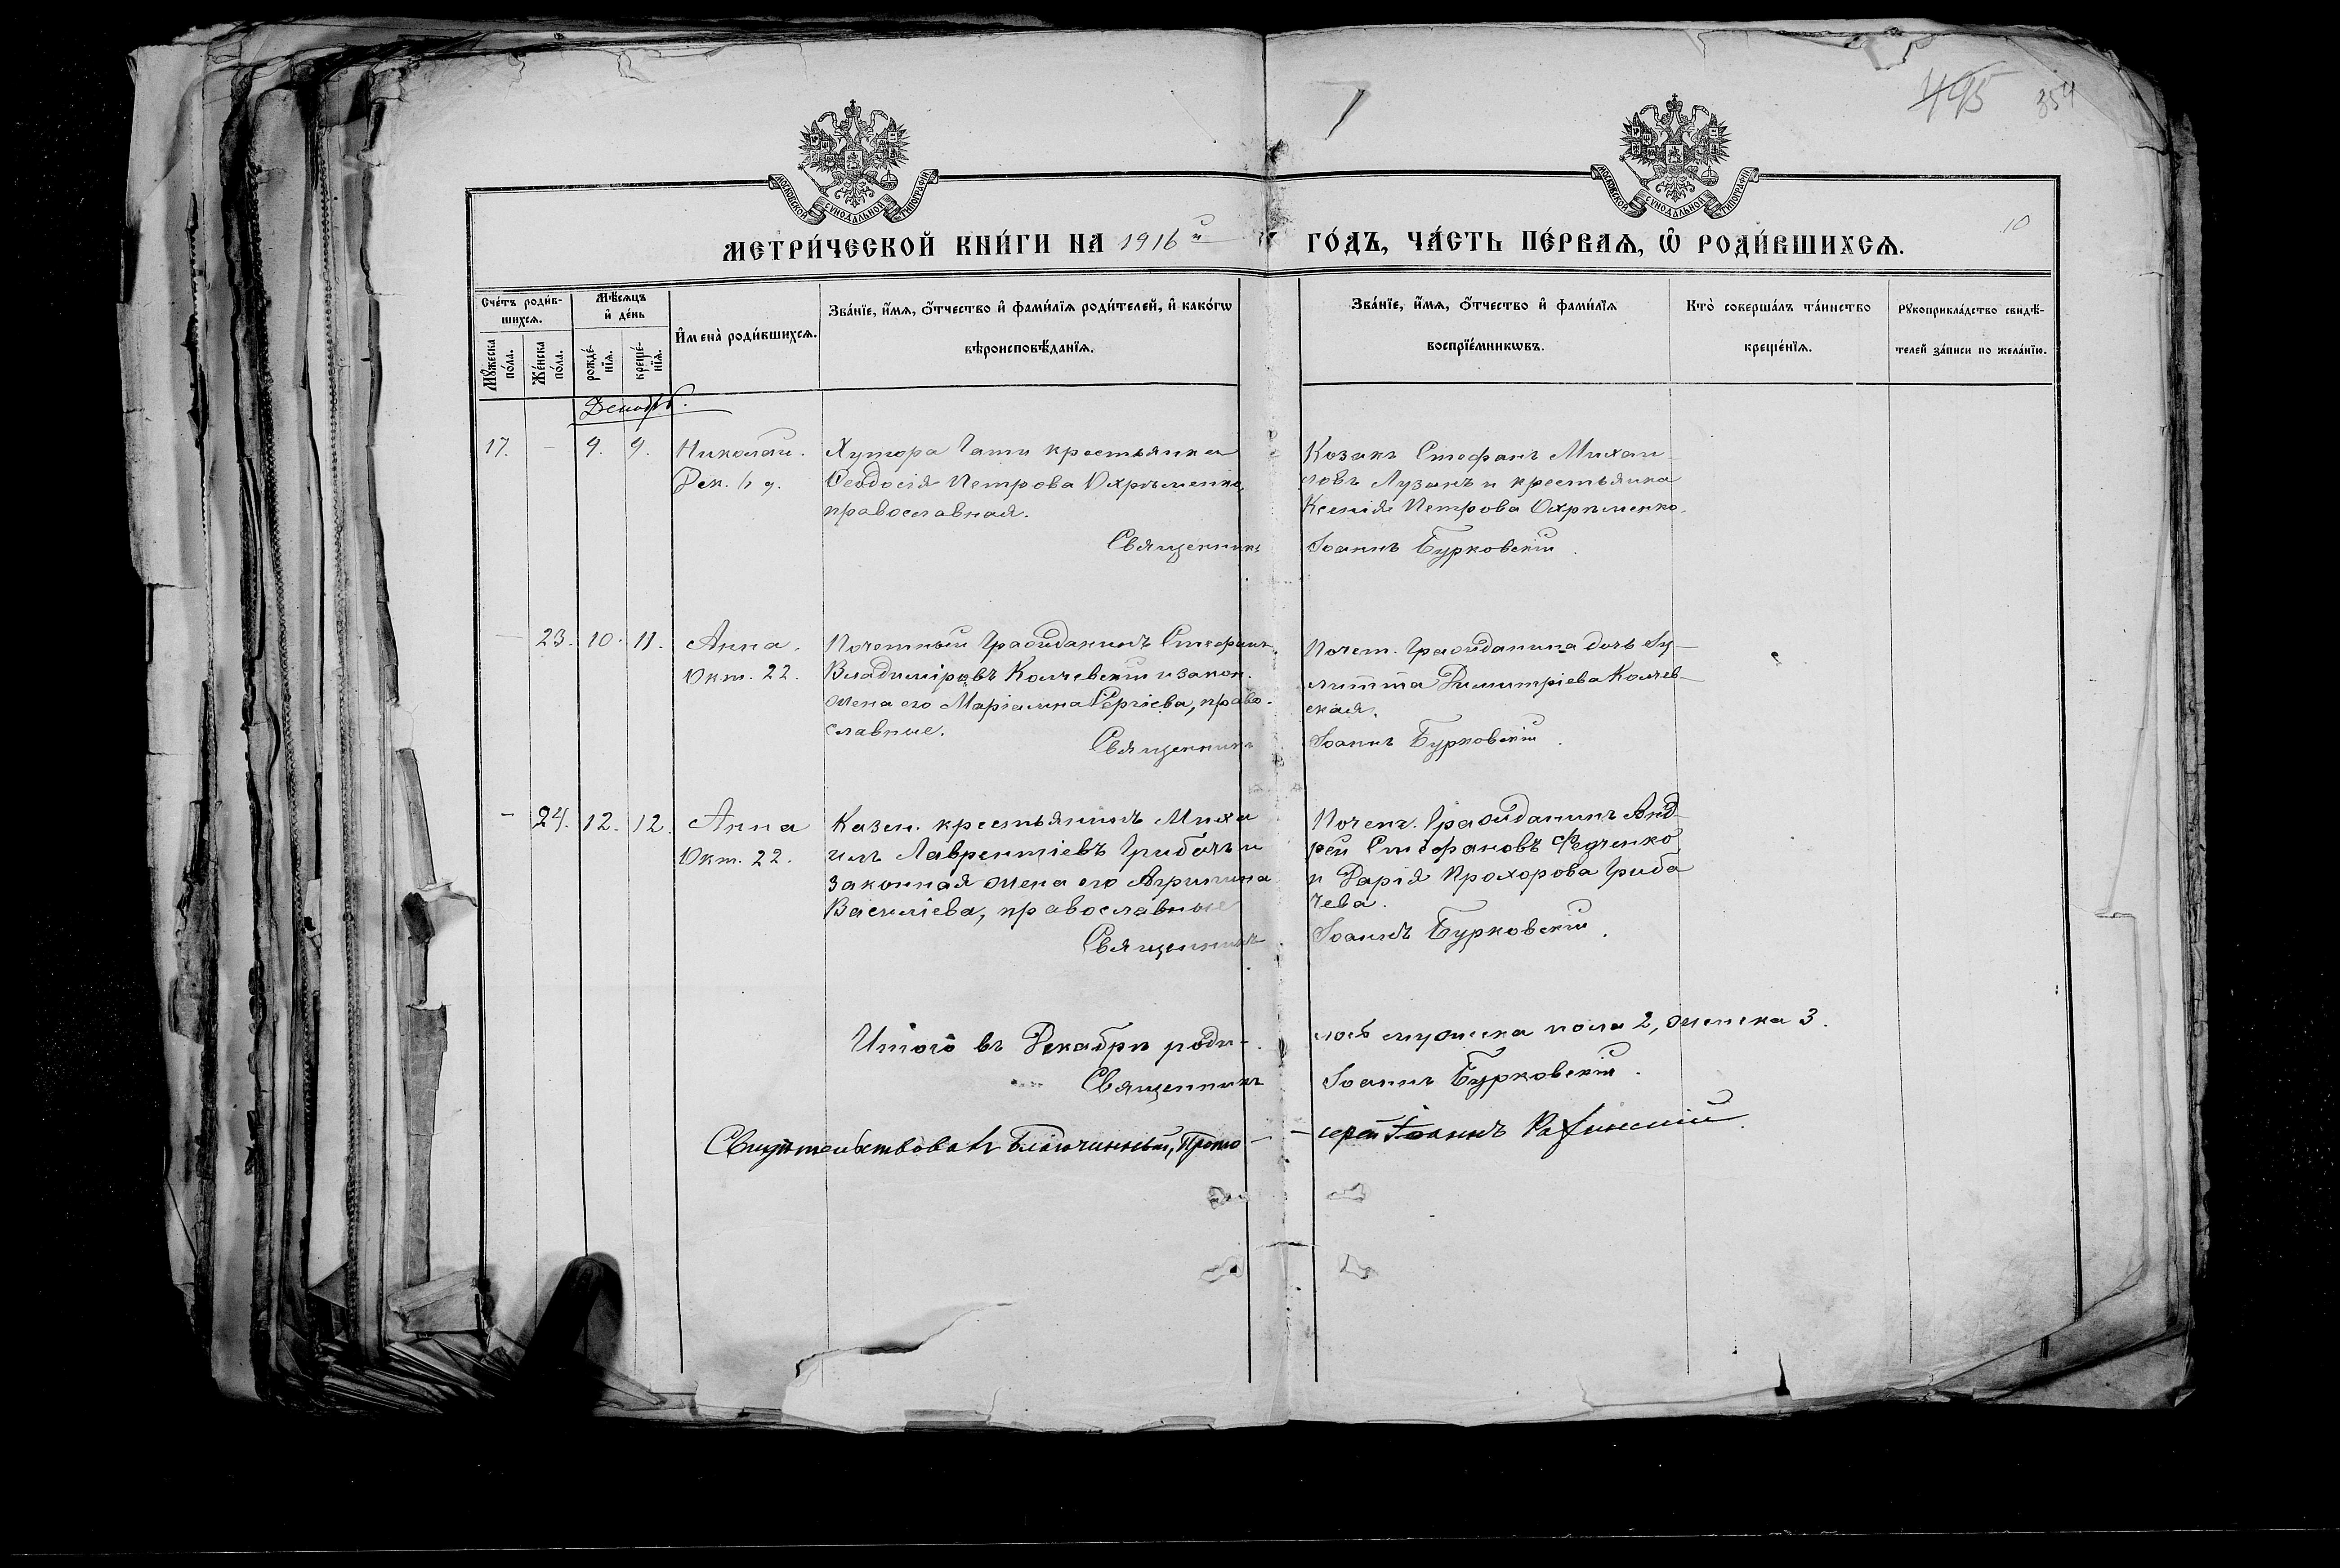 7
495 354
МОСКОВСКОЙ СѴНОДАЛЬНОЙ ТИПОГРАФІИ
МОСКОВСКОЙ СѴНОДАЛЬНОЙ ТИПОГРАФІИ
10
МЕТРИ́ЧЕСКОЙ КНИ́ГИ НА 1916й ГО́ДЪ, ЧА́СТЬ ПЕ́РВАѦ, Ѽ РОДИ́ВШИХСѦ.
Сче́тъ роди́в-
шихсѧ.
Мꙋ́жеска по́ла.
Же́нска по́ла.
Мѣ́сѧцъ
и҆ де́нь
рожде́-
нїѧ.
креще́-
нїѧ.
И҆мена̀ роди́вшихсѧ.
Зва́нїе, и҆́мѧ, ѻ҆́тчество и҆ фами́лїѧ роди́телей, и҆ како́гѡ
вѣроисповѣ́данїѧ.
Зва́нїе, и҆́мѧ, ѻ҆́тчество и҆ фами́лїѧ
воспрїе́мникѡвъ.
Кто̀ соверша́лъ та́инство
креще́нїѧ.
Рꙋкоприкла́дство свидѣ́-
телей за́писи по жела́нїю.
Декабрь.
17. – 9. 9. Николай.
Дек. 6 д.
Хутора Гати крестьянка
Ѳеодосія Петрова Охрѣменко,
православная.
Священникъ
Козакъ Стефанъ Михаи-
ловъ Лузанъ и крестьянка
Ксенія Петрова Охрѣменко.
Іоаннъ Бурковскій.
– 23. 10. 11. Анна.
Окт. 22.
Почетный Гражданинъ Стефанъ
Владиміровъ Колчевскій и закон.
жена его Маріамна Сергіева, право-
славные.
Священникъ
Почет. Гражданина дочь Іу-
литта Димитріева Колчев-
ская.
Іоаннъ Бурковскій.
– 24. 12. 12. Анна
Окт. 22.
Казен. крестьянинъ Миха
илъ Лаврентіевъ Грибачъ и
законная жена его Агрипина
Василіева, православные
Священникъ
Почет. Гражданинъ Анд-
рей Стефановъ Федченко
и Дарія Прохорова Гриба
чева.
Іоаннъ Бурковскій.
Итого въ Декабрѣ роди-
лось мужеска пола 2, женска 3.
Священникъ Іоаннъ Бурковскій.
Свидѣтельствовалъ Благочинный, Прото-
іерей Іоаннъ